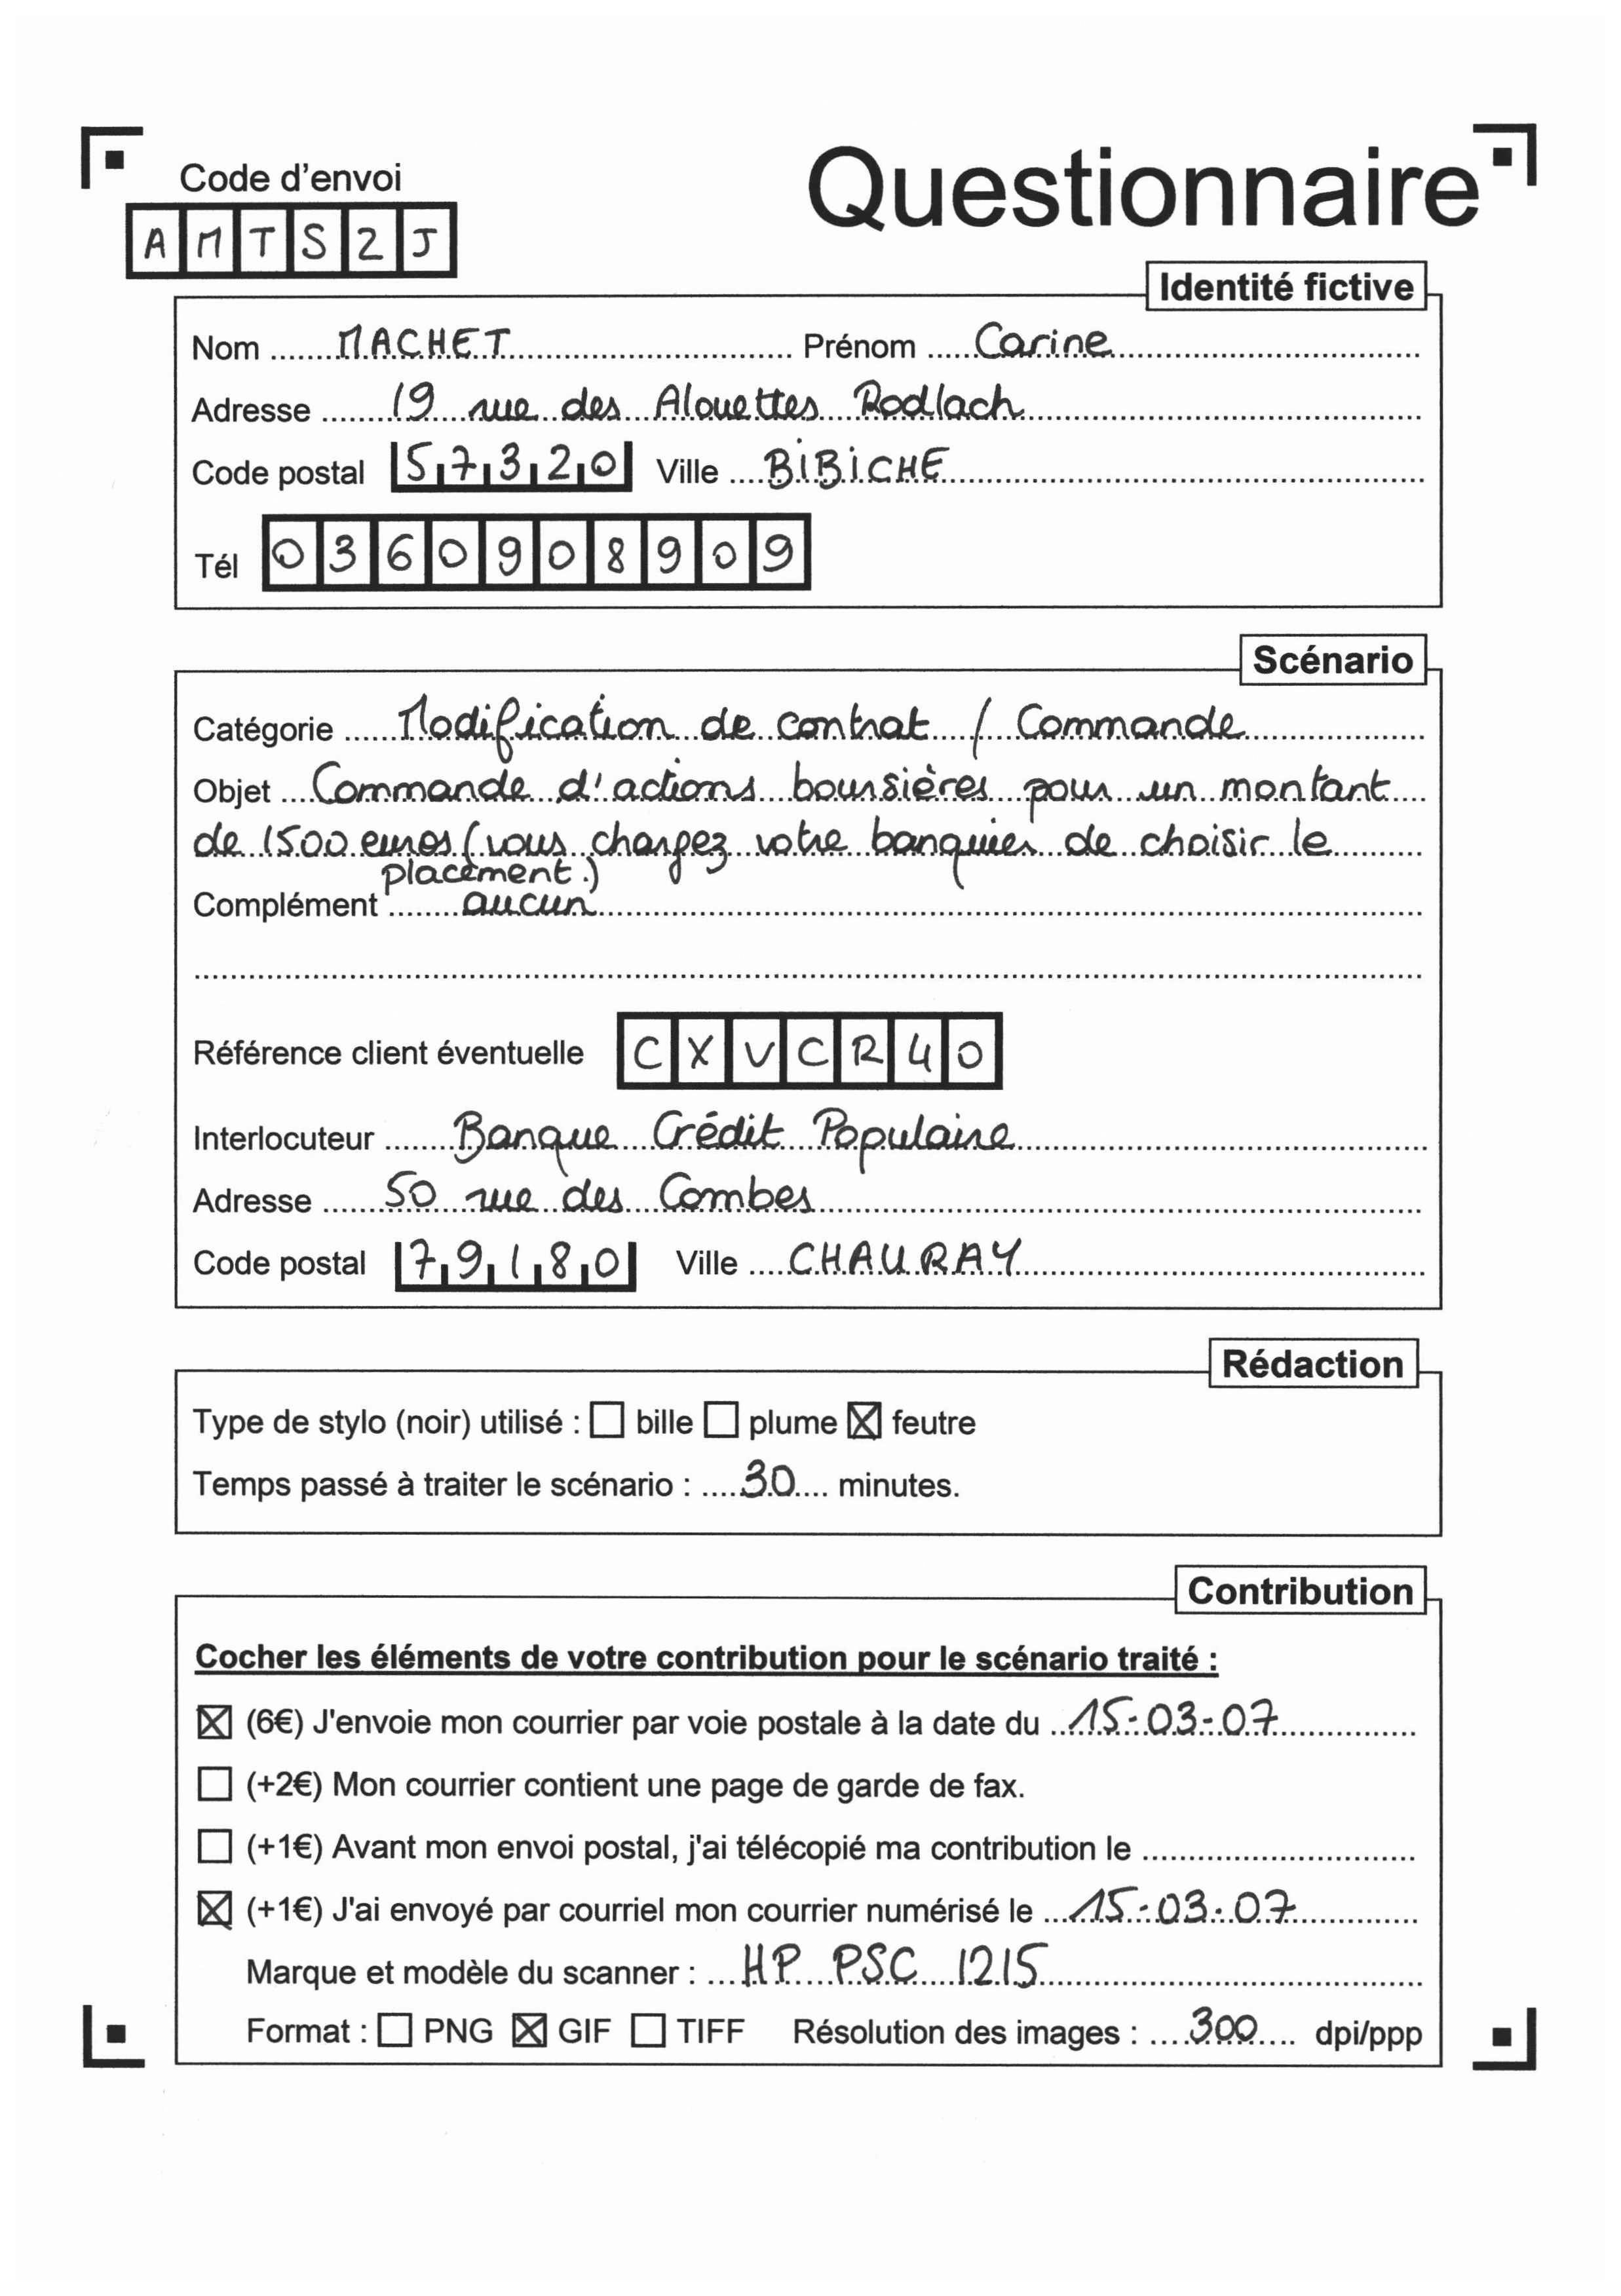 Code d'envoi
Questionnaire
A M T S 2 J
Identité fictive
Nom ....... MACHET ....... Prénom ..... Carine .......
Adresse ....... 19 rue des Alouettes Rodlach .......
Code postal 5 7 3 2 0 Ville .... BIBICHE .......
Tél 0 3 6 0 9 0 8 9 0 9
Scénario
Catégorie ...... Modification de contrat / Commande .......
Objet .... Commande d'actions boursières pour un montant ....
de 1500 euros (vous chargez votre banquier de choisir le
placement.)
Complément ....... aucun .......
Référence client éventuelle C X V C R 4 0
Interlocuteur ....... Banque Crédit Populaire .......
Adresse ...... 50 rue des Combes .......
Code postal 7 9 1 8 0 Ville .... CHAURAY .......
Rédaction
Type de stylo (noir) utilisé : ☐ bille ☐ plume ☒ feutre
Temps passé à traiter le scénario : .... 30 .... minutes.
Contribution
Cocher les éléments de votre contribution pour le scénario traité :
☒ (6€) J'envoie mon courrier par voie postale à la date du .. 15-03-07 .......
☐ (+2€) Mon courrier contient une page de garde de fax.
☐ (+1€) Avant mon envoi postal, j'ai télécopié ma contribution le .......
☒ (+1€) J'ai envoyé par courriel mon courrier numérisé le ... 15-03-07 .......
Marque et modèle du scanner : ... HP PSC 1215 .......
Format : ☐ PNG ☒ GIF ☐ TIFF Résolution des images : .... 300 .... dpi/ppp